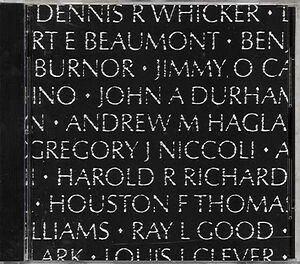 DENNIS R WHICKER ·
RT E BEAUMONT · BEN
BURNOR · JIMMY O CA
INO · JOHN A DURHAM
N · ANDREW M HAGLA
GREGORY J NICCOLI · A
· HAROLD R RICHARD
· HOUSTON F THOMAS
LLIAMS · RAY L GOOD ·
ARK · LOUIS J CLEVER ·